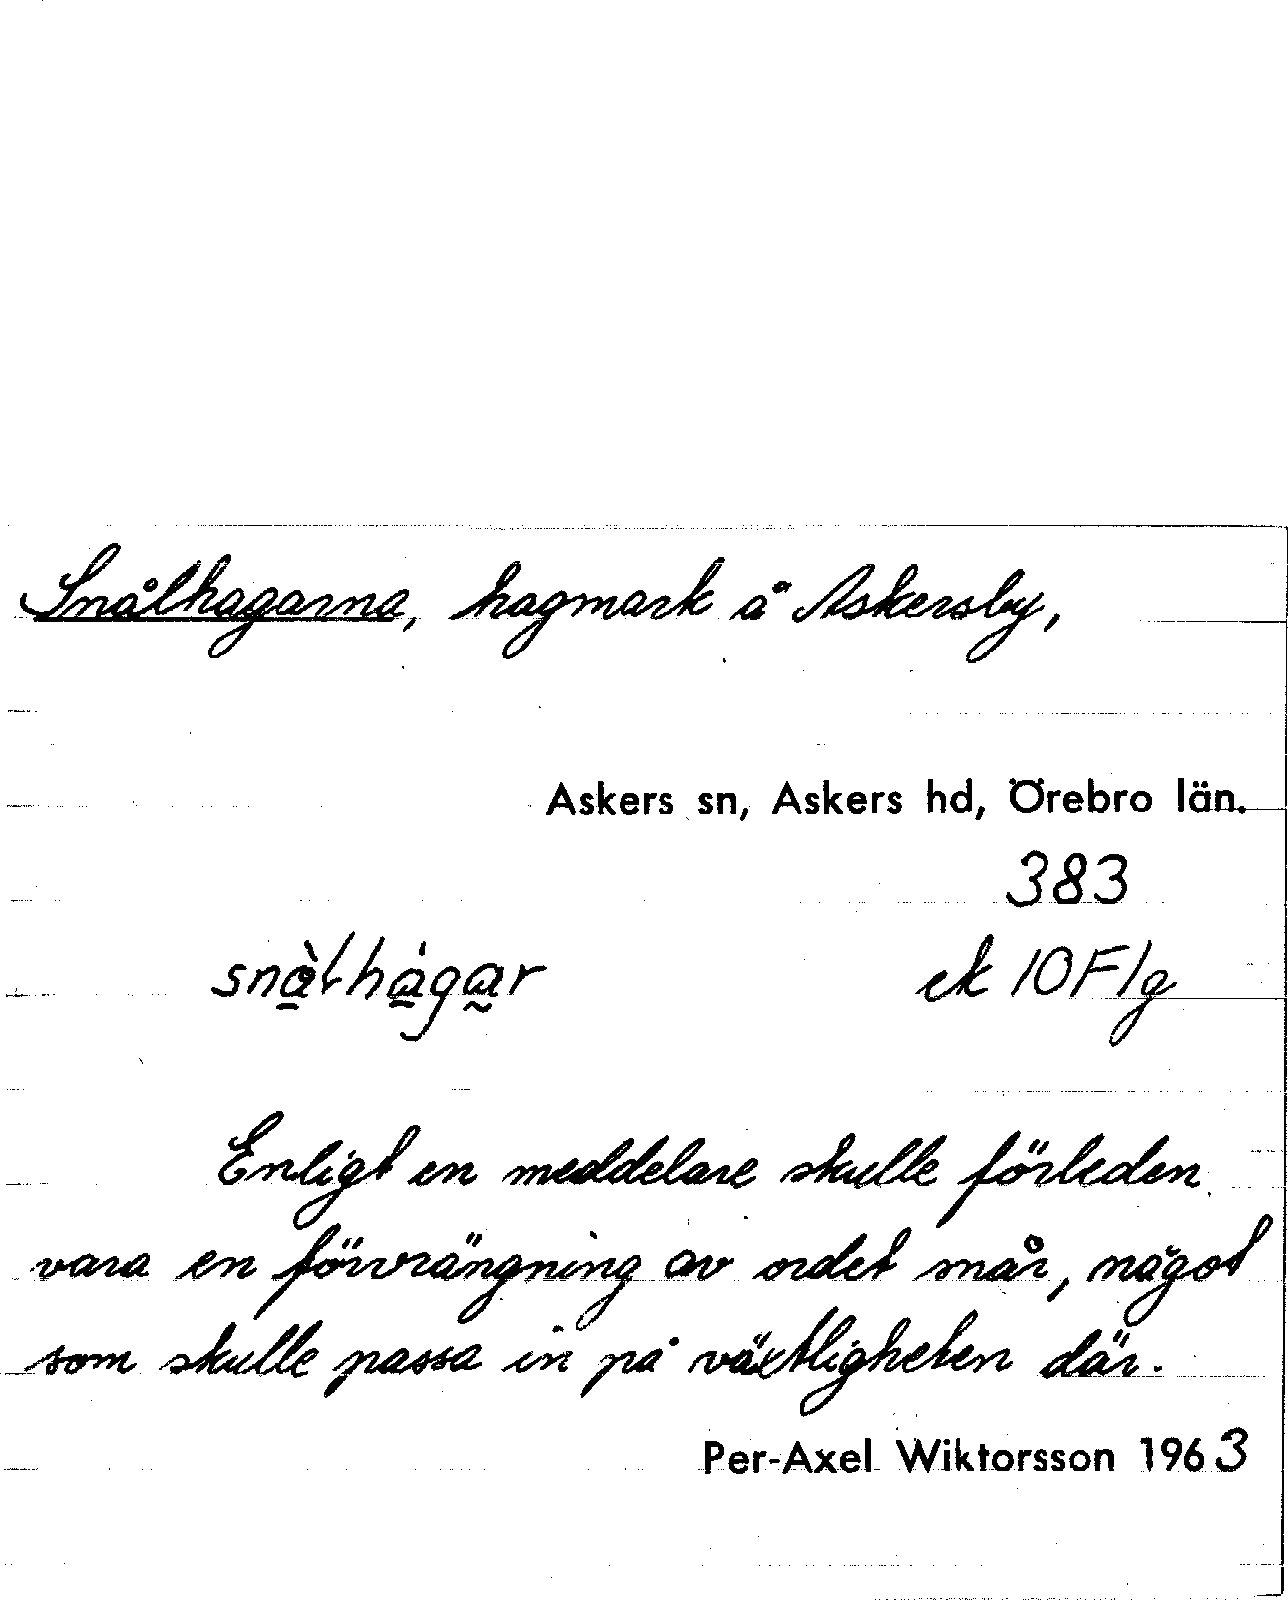 Snålhagarna, hagmark å Askersby,
Askers sn, Askers hd, Örebro län.
383
snålhagar ek 10F1g
Enligt en meddelare skulle förleden
vara en förvrängning av ordet snår, något
som skulle passa in på växtligheten där.
Per-Axel Wiktorsson 1963